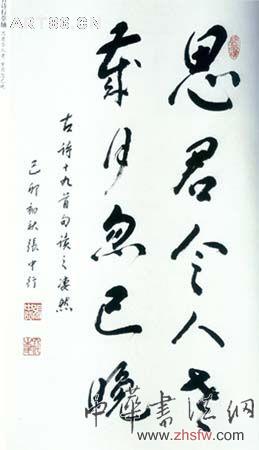 思君令人老
歲月忽已晚
古诗十九首句读之凄然
己卯初秋張中行
Art86.cn
中華書法網
www.zhsfw.com